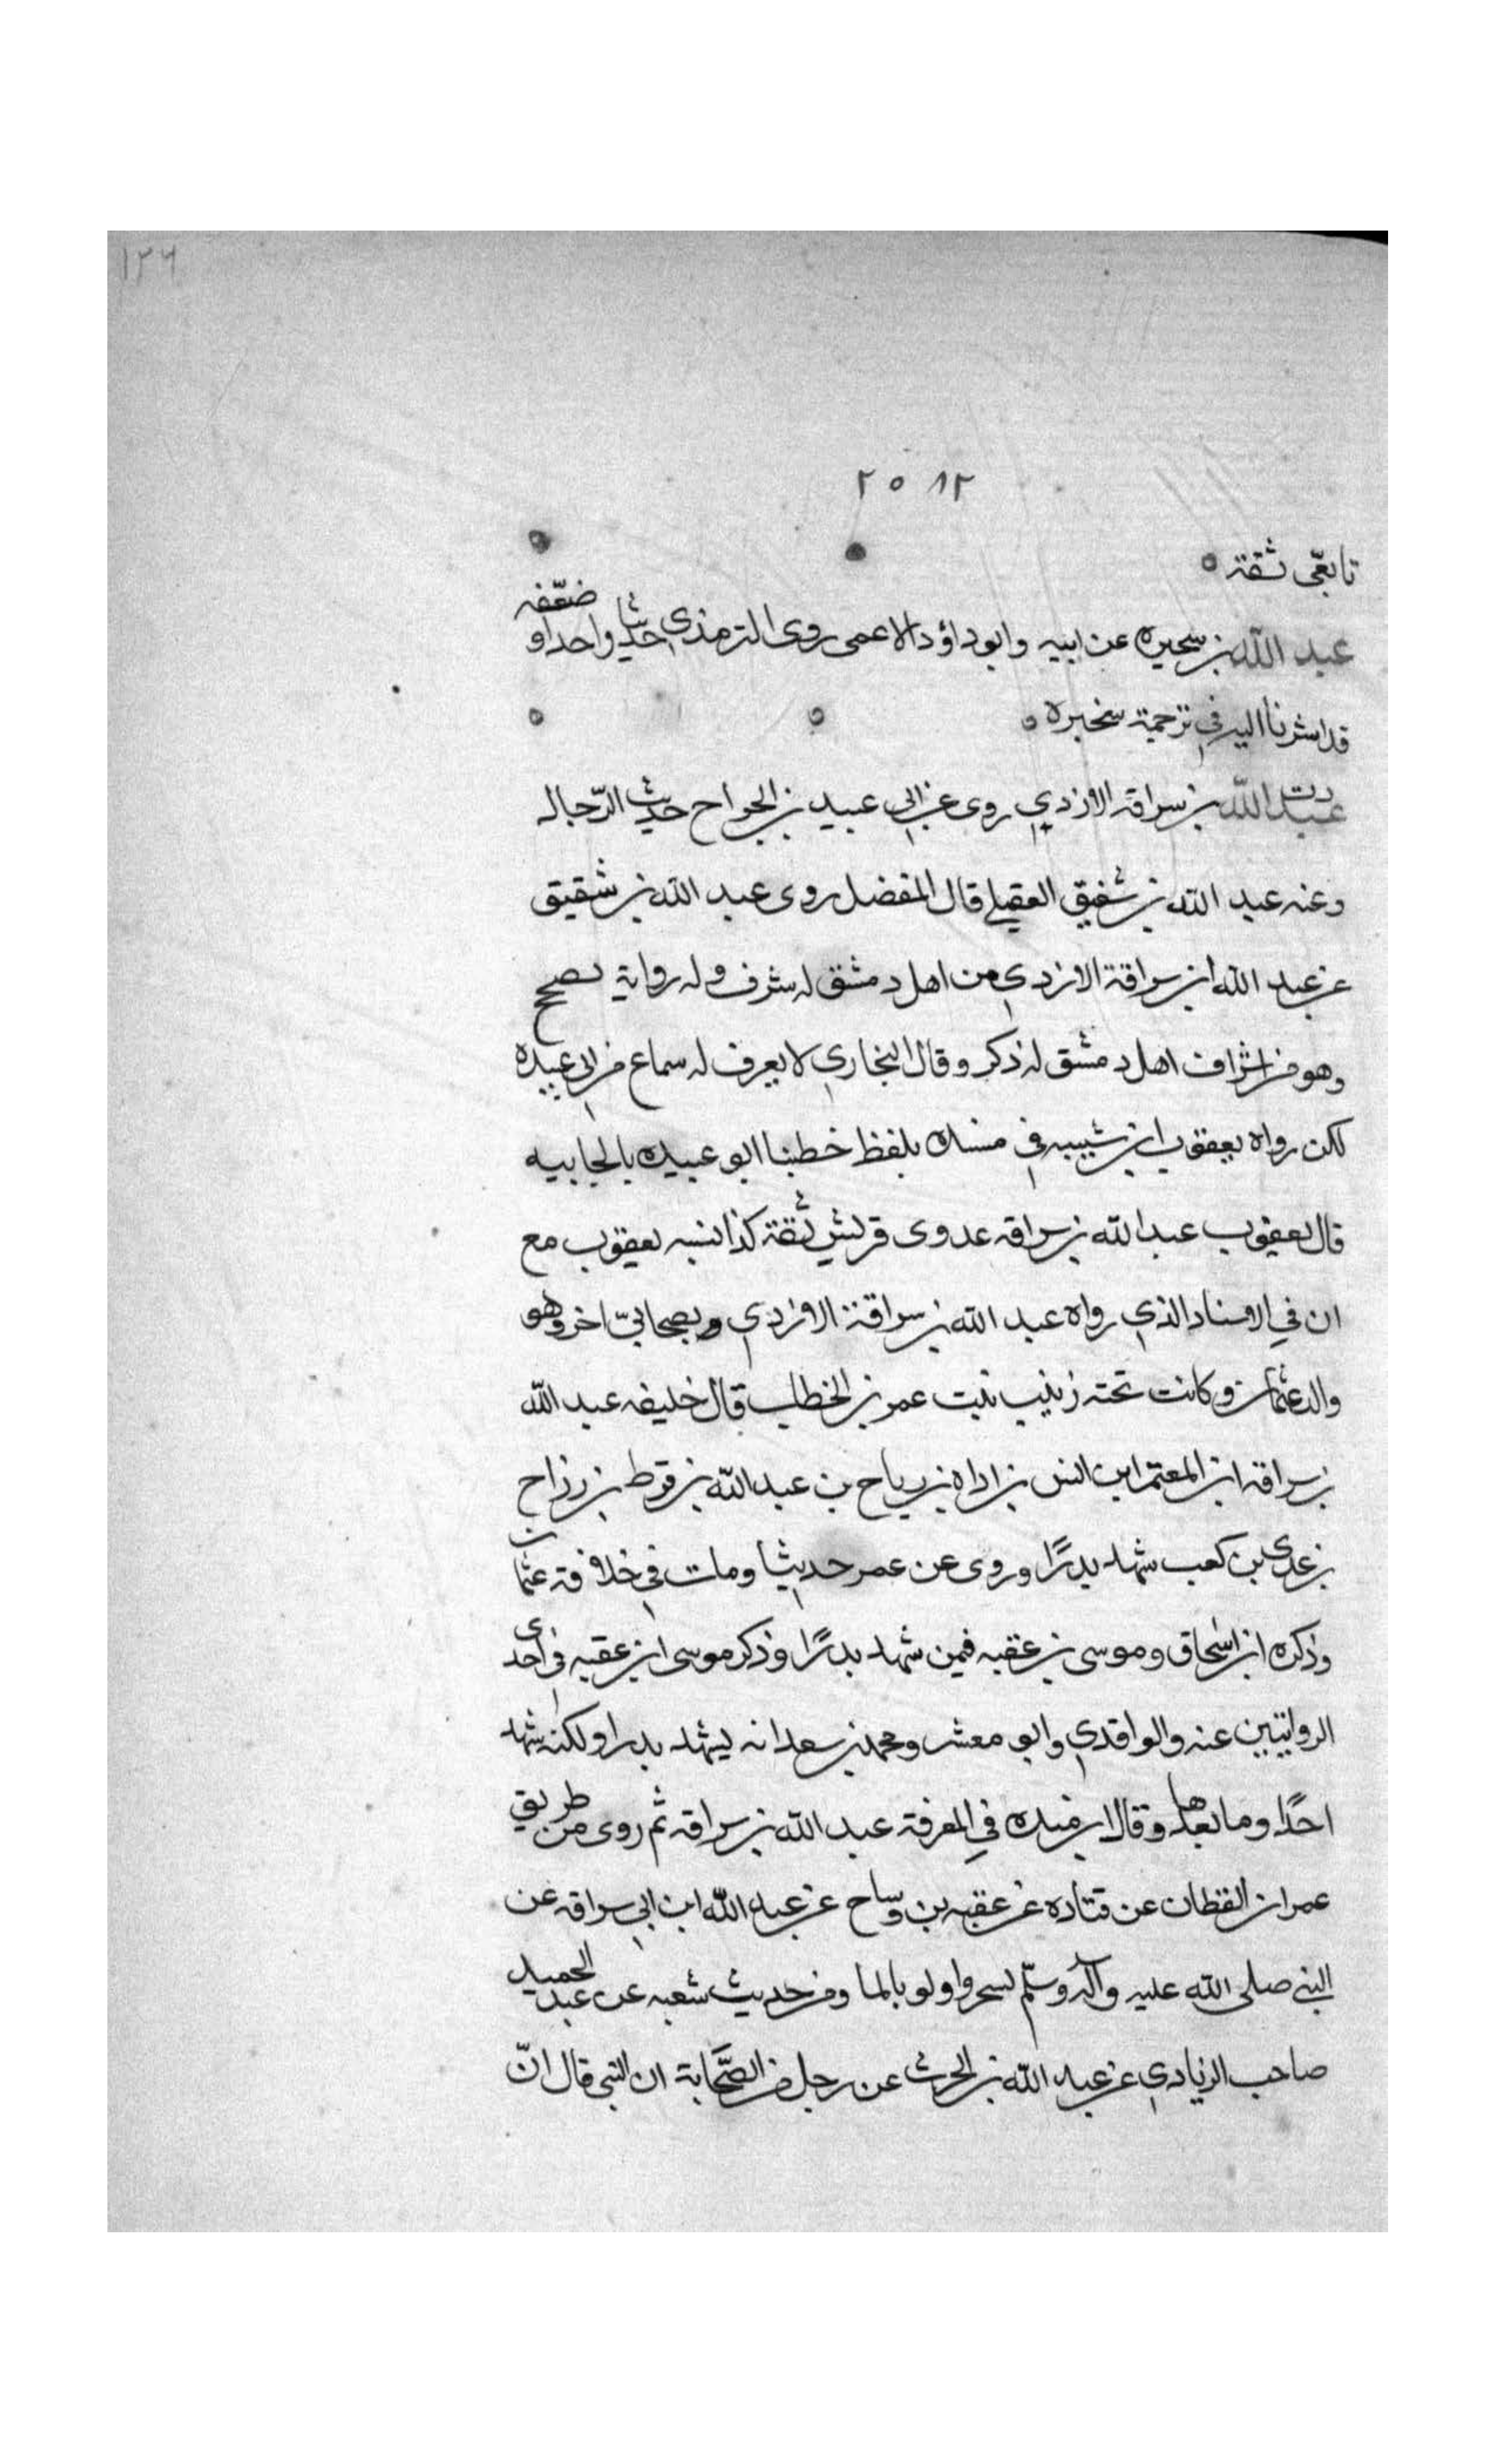 ١٢٦
٢٥٨٢
تابعي ثقة
عبد الله بن سحيره عن ابيه وابو داؤد الاعمى روى الترمذي حديثا واحدا و ضعّفه
قد اشرنا اليه في ترجمة سخبره
عبد الله بن سراقة الازدي روى عن ابي عبيد بن الجراح حديث الدّجال
وعنه عبد الله بن شقيق العقيلي قال المفضل روى عبد الله بن شقيق
عن عبد الله ابن سراقة الازدي من اهل دمشق له شرف وله رواية تصح
وهو من اشراف اهل دمشق له ذكر وقال البخاري لا يعرف له سماع من ابي عبيده
لكن رواه يعقوب ابن شيبه في مسنده بلفظ خطبنا ابو عبيده بالجابيه
قال يعقوب عبد الله بن سراقه عدوى قريش ثقة كذا نسبه يعقوب مع
ان في الاسناد الذي رواه عبد الله بن سراقة الازدي وبصحابيّ اخر وهو
والد عثمان وكانت تحته زينب بنت عمر بن الخطاب قال خليفه عبد الله
بن سراقه ابن المعتمر ابن انس بن اداه بن رياح بن عبد الله بن قرط بن رزاح
بن عدي بن كعب شهد بدرًا وروى عن عمر حديثا ومات في خلافة عثمان
وذكره ابن اسحاق وموسى بن عقبه فيمن شهد بدرًا وذكر موسى ابن عقبه في احدى
الروايتين عنه والواقدي وابو معشر ومحمد بن سعد انه يشهد بدرا ولكنه شهد
احدًا وما بعدها وقال ابن منده في المعرفة عبد الله بن سراقه ثم روى من طريق
عمران القطان عن قتاده عن عقبه بن وساح عن عبد الله ابن ابي سراقه عن
النبي صلى الله عليه وآله وسلّم تسحروا ولو بالما ومن حديث شعبه عن عبد الحميد
صاحب الزيادي عن عبد الله بن الحرث عن رجل من الصّحابة ان النبي قال انّ